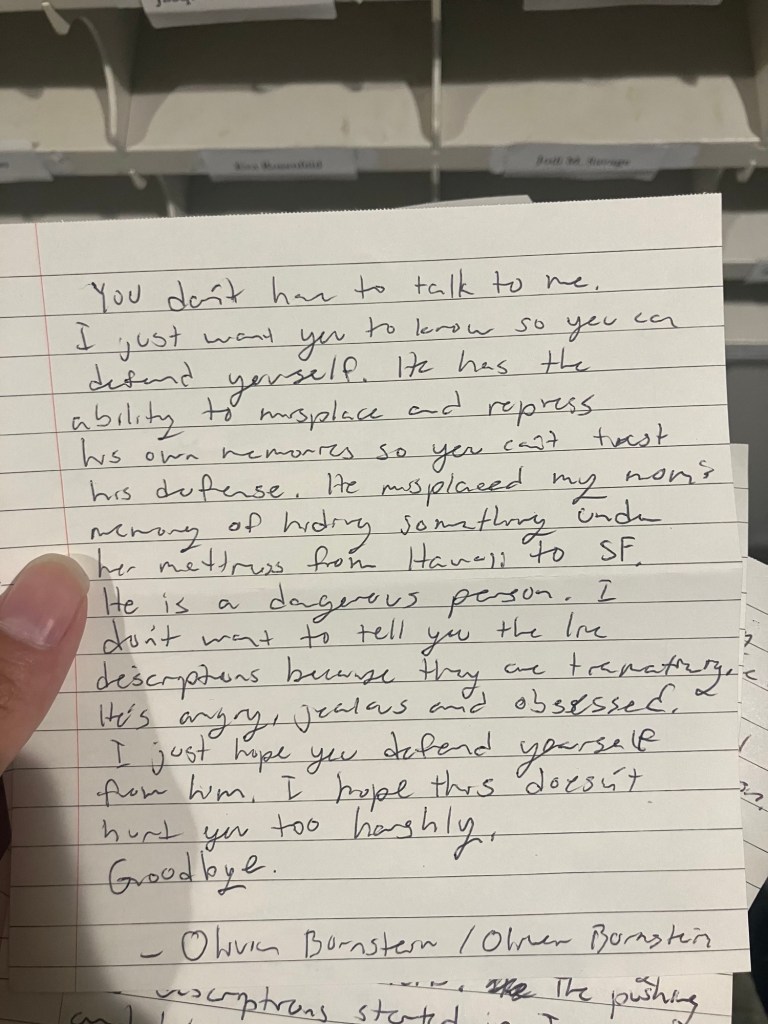 You don't have to talk to me.
I just want you to know so you can
defend yourself. He has the
ability to misplace and repress
his own memories so you can't trust
his defense. He misplaced my mom's
memory of hiding something under
her mettress from Hawaii to SF.
He is a dagerous person. I
don't want to tell you the live
descriptions because they are tramatizing.
He's angry, jealous and obsessed.
I just hope you defend yourself
from him. I hope this doesn't
hurt you too harshly.
Goodbye.
- Olivia Bornstein / Oliver Bornstein
The pushing
descriptions started I